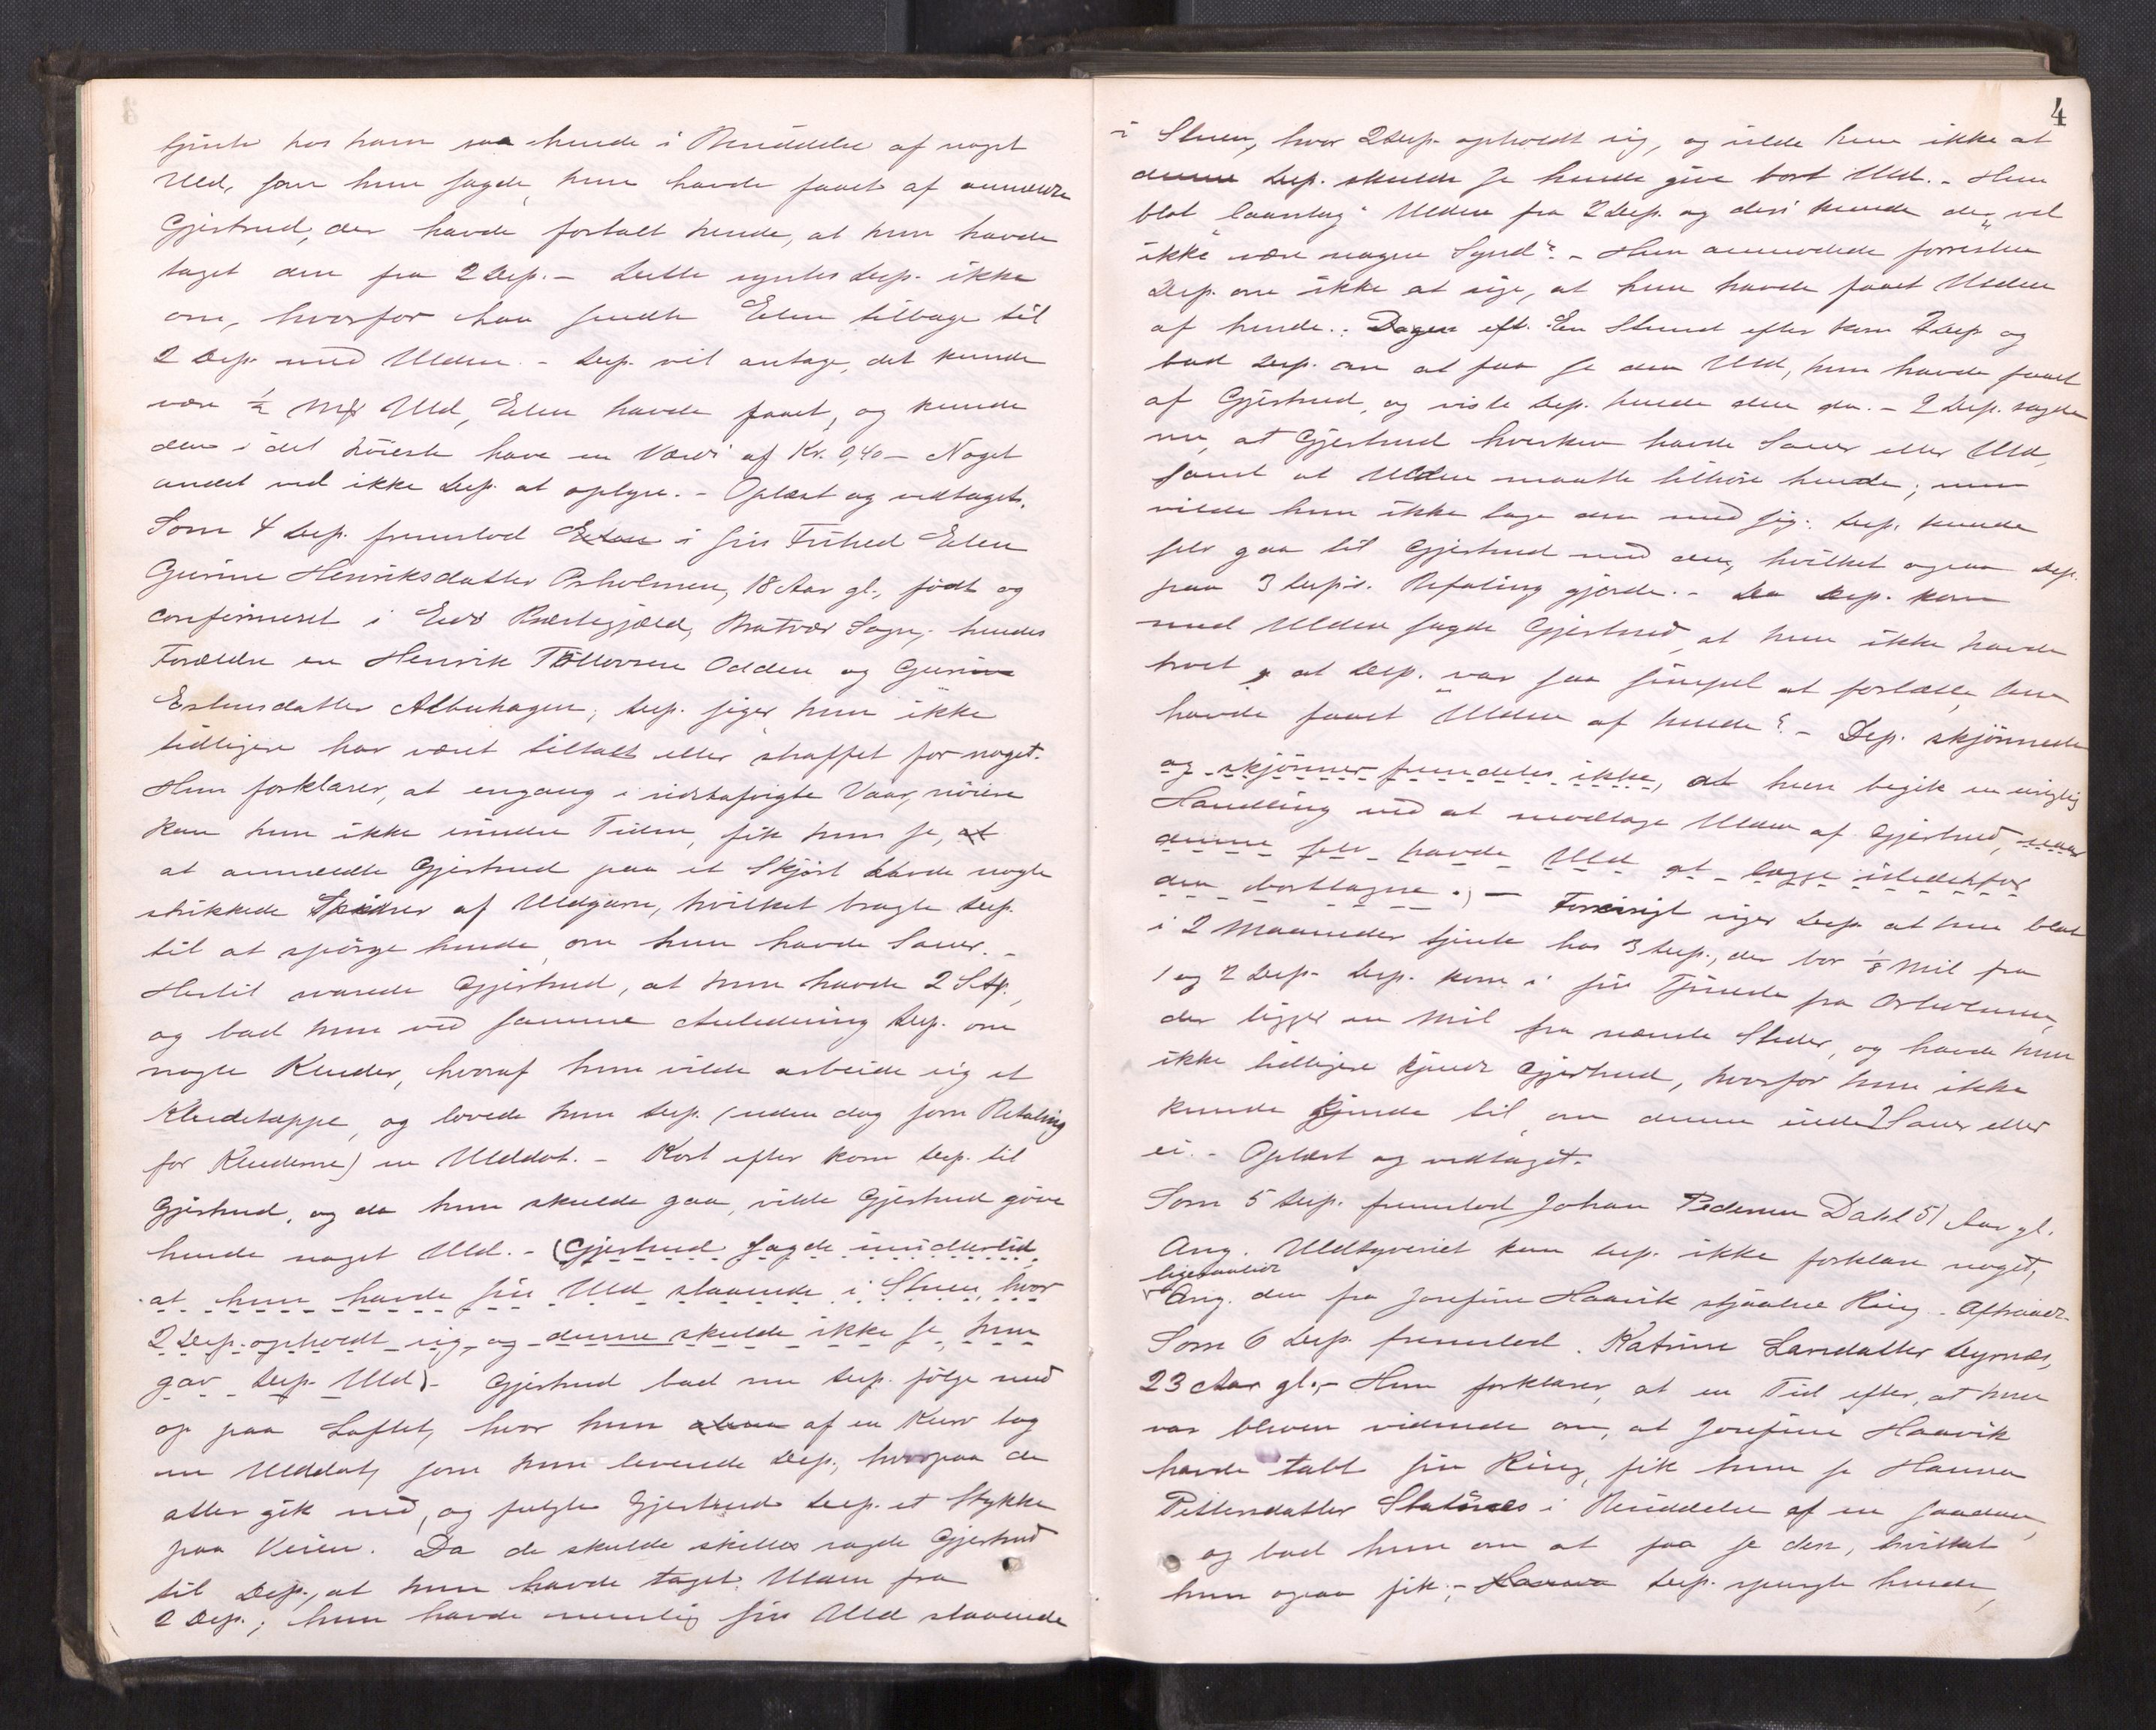 tjente hos ham saa hende i Besiddelse af noget
Uld, som hun sagde, hun havde faaet af anmeldte
Gjertrud, der havde fortalt hende, at hun havde
taget den fra 2 Dep. - Dette syntes Dep. ikke
om, hvorfor han sendte Elen tilbage til
2 Dep. med Ulden. - Dep. vil antage, det kunde
være ½ Mk Uld, Elen havde faaet, og kunde
den i det höieste have en Værdi af Kr. 0,40 - Noget
andet ved ikke Dep. at oplyse. - Oplæst og vedtaget.
Som 4 Dep. fremstod Elen i sin Frihed Elen
Gurine Henriksdatter Orholmen, 18 Aar gl., födt og
confirmeret i Edö Præstegjæld, Bratvær Sogn; hendes
Forældre er Henrik Tollevsen Odden og Gurine
Estensdatter Albuhagen; Dep. siger hun ikke
tidligere har været tiltalt eller straffet for noget.
Hun forklarer, at engang i sidstafvigte Vaar, nöiere
kan hun ikke erindre Tiden, fik hun se, at
at anmeldte Gjertrud paa et Skjört havde nogle
strikkede Spidser af Uldgarn, hvilket bragte Dep.
til at spörge hende, om hun havde Sauer. -
Hertil svarede Gjertrud, at hun havde 2 Stk.,
og bad hun ved samme Anledning Dep. om
nogle Kluder, hvoraf hun vilde arbeide sig et
Kludetæppe, og lovede hun Dep. (uden dog som Betaling
for Kluderne) en Ulddot. - Kort efter kom Dep. til
Gjertrud, og da hun skulde gaa, vilde Gjertrud give
hende noget Uld. - (Gjertrud sagde imidlertid,
at hun havde sin Uld staaende i Stuen, hvor
2 Dep. opholdt sig, og denne skulde ikke se, hun
gav Dep. Uld). Gjertrud bad nu Dep. fölge med
op paa Loftet, hvor hun af en Kurv tog
en Ulddot, som hun leverede Dep., hvorpaa de
atter gik ned, og fulgte Gjertrud Dep. et Stykke
paa Veien. Da de skulde skilles sagde Gjertrud
til Dep., at hun havde taget Ulden fra
2 Dep.; hun havde nemlig sin Uld staaende
4
i Stuen, hvor 2 Dep. opholdt sig, og vilde hun ikke at
denne Dep. skulde se hende give bort Uld. - Hun
blot "laantog" Ulden fra 2 Dep. og deri kunde der "vel
ikke være nogen Synd". - Hun anmodede forresten
Dep. om ikke at sige, at hun havde faaet Ulden
af hende. Dagen eft. En Stund efter kom 2 Dep og
bad Dep. om at faa se den Uld, hun havde faaet
af Gjertrud, og viste Dep. hende den da. - 2 Dep. sagde
nu, at Gjertrud hverken havde Sauer eller Uld,
samt at Ulden maatte tilhöre hende; men
vilde hun ikke tage den med sig. Dep. kunde
selv gaa til Gjertrud med den, hvilket ogsaa Dep.
paa 3 Dep's. Befaling gjorde. - Da Dep. kom
med Ulden sagde Gjertrud, at hun ikke havde
troet, at Dep. "var saa simpel at fortælle, hun
havde faaet Ulden af hende". - Dep. skjönnede
og skjönner fremdeles ikke, at hun begik en urigtig
Handling ved at modtage Ulden af Gjertrud, naar
denne selv havde Uld at lægge istedetfor
den borttagne.) - Forövrigt siger Dep. at hun blot
i 2 Maaneder tjente hos 3 Dep., der bor ⅛ Mil fra
1 og 2 Dep. Dep. kom i sin Tjeneste fra Orholmen,
der ligger en Mil fra nævnte Steder, og havde hun
ikke tidligere kjendt Gjertrud, hvorfor hun ikke
kunde kjende til, om denne eiede Sauer eller
ei. - Oplæst og vedtaget.
Som 5 Dep. fremstod Johan Pedersen Dahl 51 Aar gl.
Ang. Uldtyveriet kan Dep. ikke forklare noget,
ligesaalidt
Ang. den fra Josefine Haavik stjaalne Ring. Aftraadt.
Som 6 Dep. fremstod. Katrine Larsdatter Dyrnæs,
23 Aar gl. - Hun forklarer, at en Tid efter, at hun
var bleven vidende om, at Josefine Haavik
havde tabt sin Ring, fik hun se Hanna
Pettersdatter i Besiddelse af en saadan,
og bad hun om at faa se den, hvilket
hun ogsaa fik. - Hanna Dep. spurgte hende,